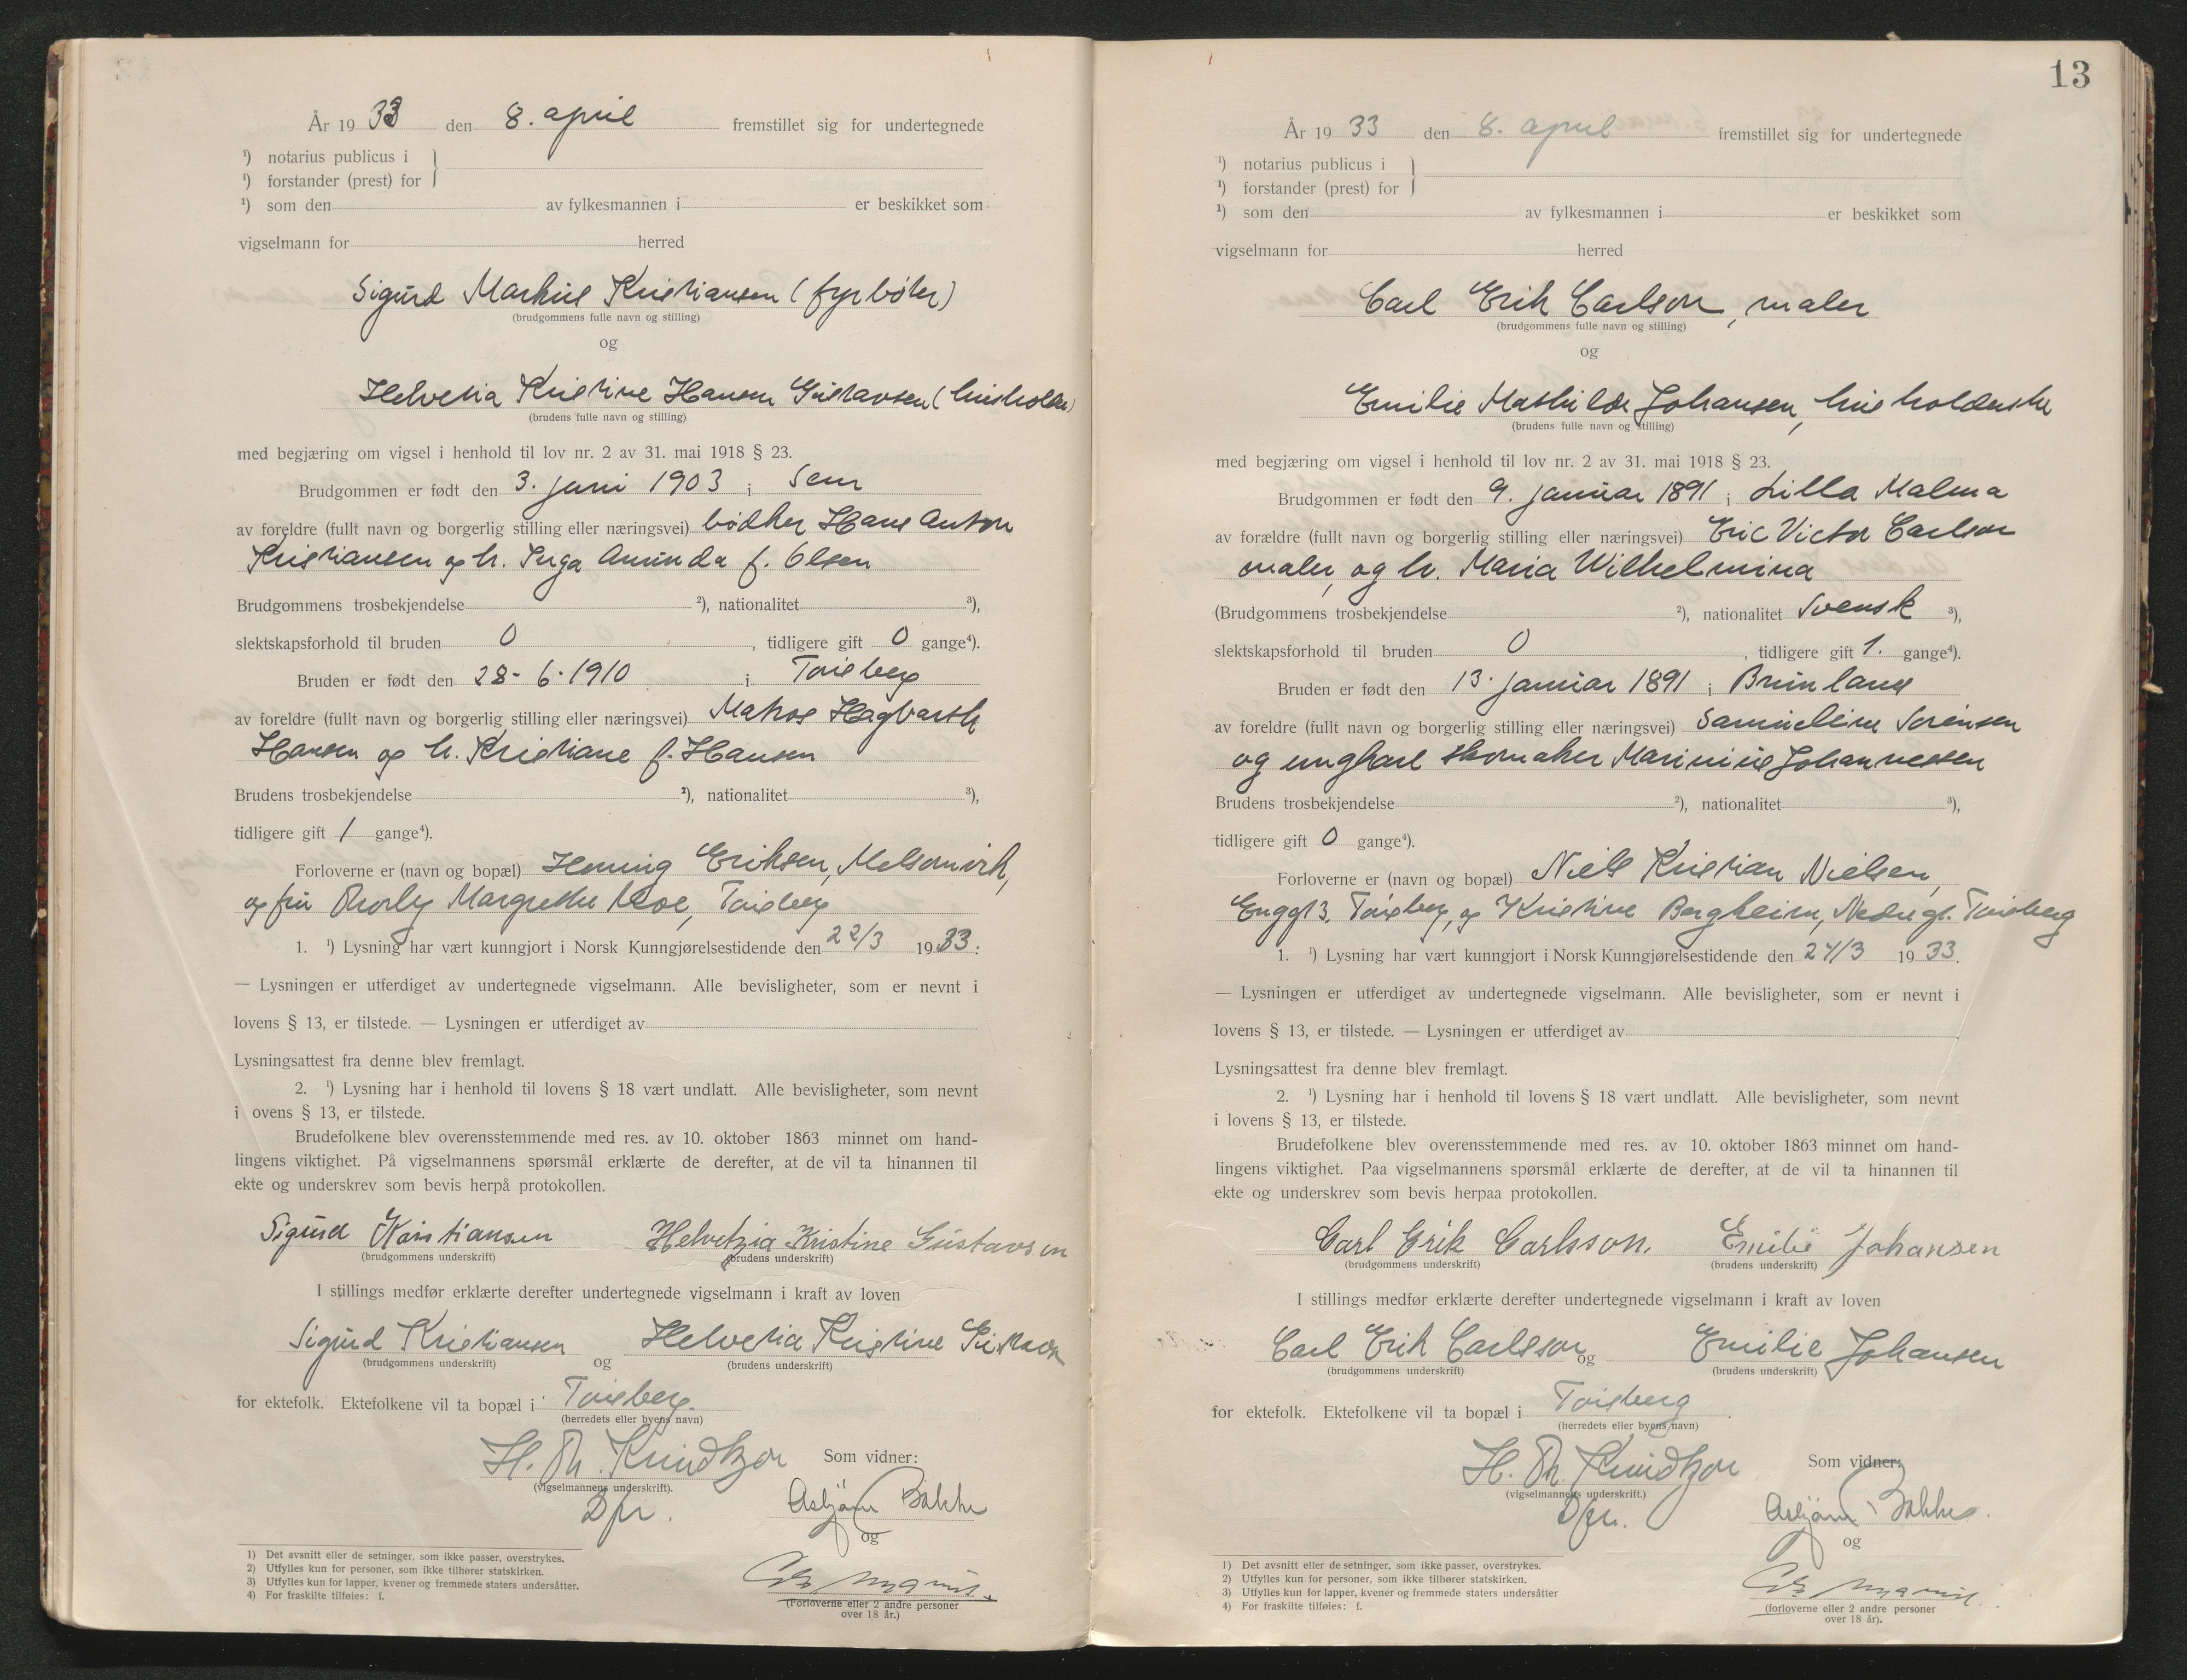 År 19 33 den 8. april fremstillet sig for undertegnede
¹) notarius publicus i
¹) forstander (prest) for
¹) som den av fylkesmannen i er beskikket som
vigselmann for herred
Sigurd Markus Kristiansen (fyrbøter)
(brudgommens fulle navn og stilling)
og
Helvetia Kristine Hansen Gustavsen (husholder)
(brudens fulle navn og stilling)
med begjæring om vigsel i henhold til lov nr. 2 av 31. mai 1918 § 23.
Brudgommen er født den 3. juni 1903 i Sem
av foreldre (fullt navn og borgerlig stilling eller næringsvei) bødker Hans Anton
Kristiansen og h. Inga Aminda f. Olsen
Brudgommens trosbekjendelse ²), nationalitet ³),
slektskapsforhold til bruden 0, tidligere gift 0 gange⁴).
Bruden er født den 28-6-1910 i Tønsberg
av foreldre (fullt navn og borgerlig stilling eller næringsvei) Matros Hagbarth
Hansen og h. Kristiane f. Hansen
Brudens trosbekjendelse ²), nationalitet ³),
tidligere gift 1 gange⁴).
Forloverne er (navn og bopæl) Henning Eriksen, Melsomvik,
og fru Margrethe Moe, Tønsberg
1. ¹) Lysning har vært kunngjort i Norsk Kunngjørelsestidende den 22/3 1933.
— Lysningen er utferdiget av undertegnede vigselmann. Alle bevisligheter, som er nevnt i
lovens § 13, er tilstede. — Lysningen er utferdiget av
Lysningsattest fra denne blev fremlagt.
2. ¹) Lysning har i henhold til lovens § 18 vært undlatt. Alle bevisligheter, som nevnt
i ovens § 13, er tilstede.
Brudefolkene blev overensstemmende med res. av 10. oktober 1863 minnet om hand-
lingens viktighet. På vigselmannens spørsmål erklærte de derefter, at de vil ta hinannen til
ekte og underskrev som bevis herpå protokollen.
Sigurd Kristiansen Helvetzia Kristine Gustavsen
(brudgommens underskrift) (brudens underskrift)
I stillings medfør erklærte derefter undertegnede vigselmann i kraft av loven
Sigurd Kristiansen og Helvetia Kristine Gustavsen
(brudgommens underskrift) (brudens underskrift)
for ektefolk. Ektefolkene vil ta bopæl i Tønsberg.
(herredets eller byens navn)
H. Th. Knudtzon Som vidner:
(vigselmannens underskrift).
Dfr. Asbjørn Bakke
og
(Forloverne eller 2 andre personer
over 18 år.)
1) Det avsnitt eller de setninger, som ikke passer, overstrykes.
2) Utfylles kun for personer, som ikke tilhører statskirken.
3) Utfylles kun for lapper, kvener og fremmede staters undersåtter.
4) For fraskilte tilføies: f.
13
År 19 33 den 8. april fremstillet sig for undertegnede
¹) notarius publicus i
¹) forstander (prest) for
¹) som den av fylkesmannen i er beskikket som
vigselmann for herred
Carl Erik Carlson, maler
(brudgommens fulle navn og stilling)
og
Emilie Mathilde Johansen, husholderske
(brudens fulle navn og stilling)
med begjæring om vigsel i henhold til lov nr. 2 av 31. mai 1918 § 23.
Brudgommen er født den 9. januar 1891 i Lilla Malma
av forældre (fullt navn og borgerlig stilling eller næringsvei) Eric Victor Carlson
maler, og h. Maria Wilhelmina
(Brudgommens trosbekjendelse ²), nationalitet svensk ³),
slektskapsforhold til bruden 0, tidligere gift 1. gange⁴).
Bruden er født den 13. januar 1891 i Brunlanes
av foreldre (fullt navn og borgerlig stilling eller næringsvei) Samueline Sørensen
og ungkarl skomaker Marinius Johannessen
Brudens trosbekjendelse ²), nationalitet ³),
tidligere gift 0 gange⁴).
Forloverne er (navn og bopæl) Niels Kristian Nielsen,
Enggt 3, Tønsberg, og Kristine Bergheim, Nedregt. Tønsberg
1. ¹) Lysning har vært kunngjort i Norsk Kunngjørelsestidende den 24/3 1933.
— Lysningen er utferdiget av undertegnede vigselmann. Alle bevisligheter, som er nevnt i
lovens § 13, er tilstede. — Lysningen er utferdiget av
Lysningsattest fra denne blev fremlagt.
2. ¹) Lysning har i henhold til lovens § 18 vært undlatt. Alle bevisligheter, som nevnt
i lovens § 13, er tilstede.
Brudefolkene blev overensstemmende med res. av 10. oktober 1863 minnet om hand-
lingens viktighet. Paa vigselmannens spørsmål erklærte de derefter, at de vil ta hinannen til
ekte og underskrev som bevis herpaa protokollen.
Carl Erik Carlsson. Emilie Johansen
(brudgommens underskrift) (brudens underskrift)
I stillings medfør erklærte derefter undertegnede vigselmann i kraft av loven
Carl Erik Carlsson og Emilie Johansen
(brudgommens underskrift) (brudens underskrift)
for ektefolk. Ektefolkene vil ta bopæl i Tønsberg.
(herredets eller byens navn)
H. Th. Knudtzon Som vidner:
(vigselmannens underskrift.)
Dfr. Asbjørn Bakke.
og
(forloverne eller 2 andre personer
over 18 år).
1) Det avsnitt eller de setninger, som ikke passer, overstrykes.
2) Utfylles kun for personer, som ikke tilhører statskirken.
3) Utfylles kun for lapper, kvener og fremmede staters undersåtter
4) For fraskilte tilføies: f.